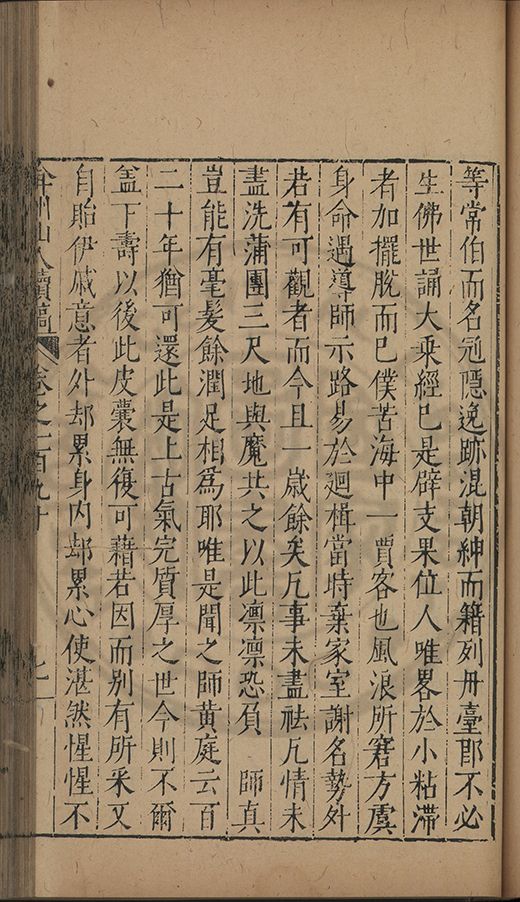 等常伯而名冠隱逸跡混朝紳而籍列丹臺郎不必
生佛世誦大乘經已是辟支果位人唯畧於小粘滯
者加擺脫而已僕苦海中一賈客也風浪所窘方虞
身命遇導師示路易於迴楫當時棄家室謝名勢外
若有可觀者而今且一歲餘矣凡事未盡祛凡情未
盡洗蒲團三尺地與魔共之以此凛凛恐負　師真
豈能有毫髮餘潤足相爲耶唯是聞之師黄庭云百
二十年猶可還此是上古氣完質厚之世今則不爾
盖下壽以後此皮囊無復可藉若因而別有所采又
自貽伊戚意者外却累身內却累心使湛然惺惺不
弇州山人續稿 卷之一百九十 七